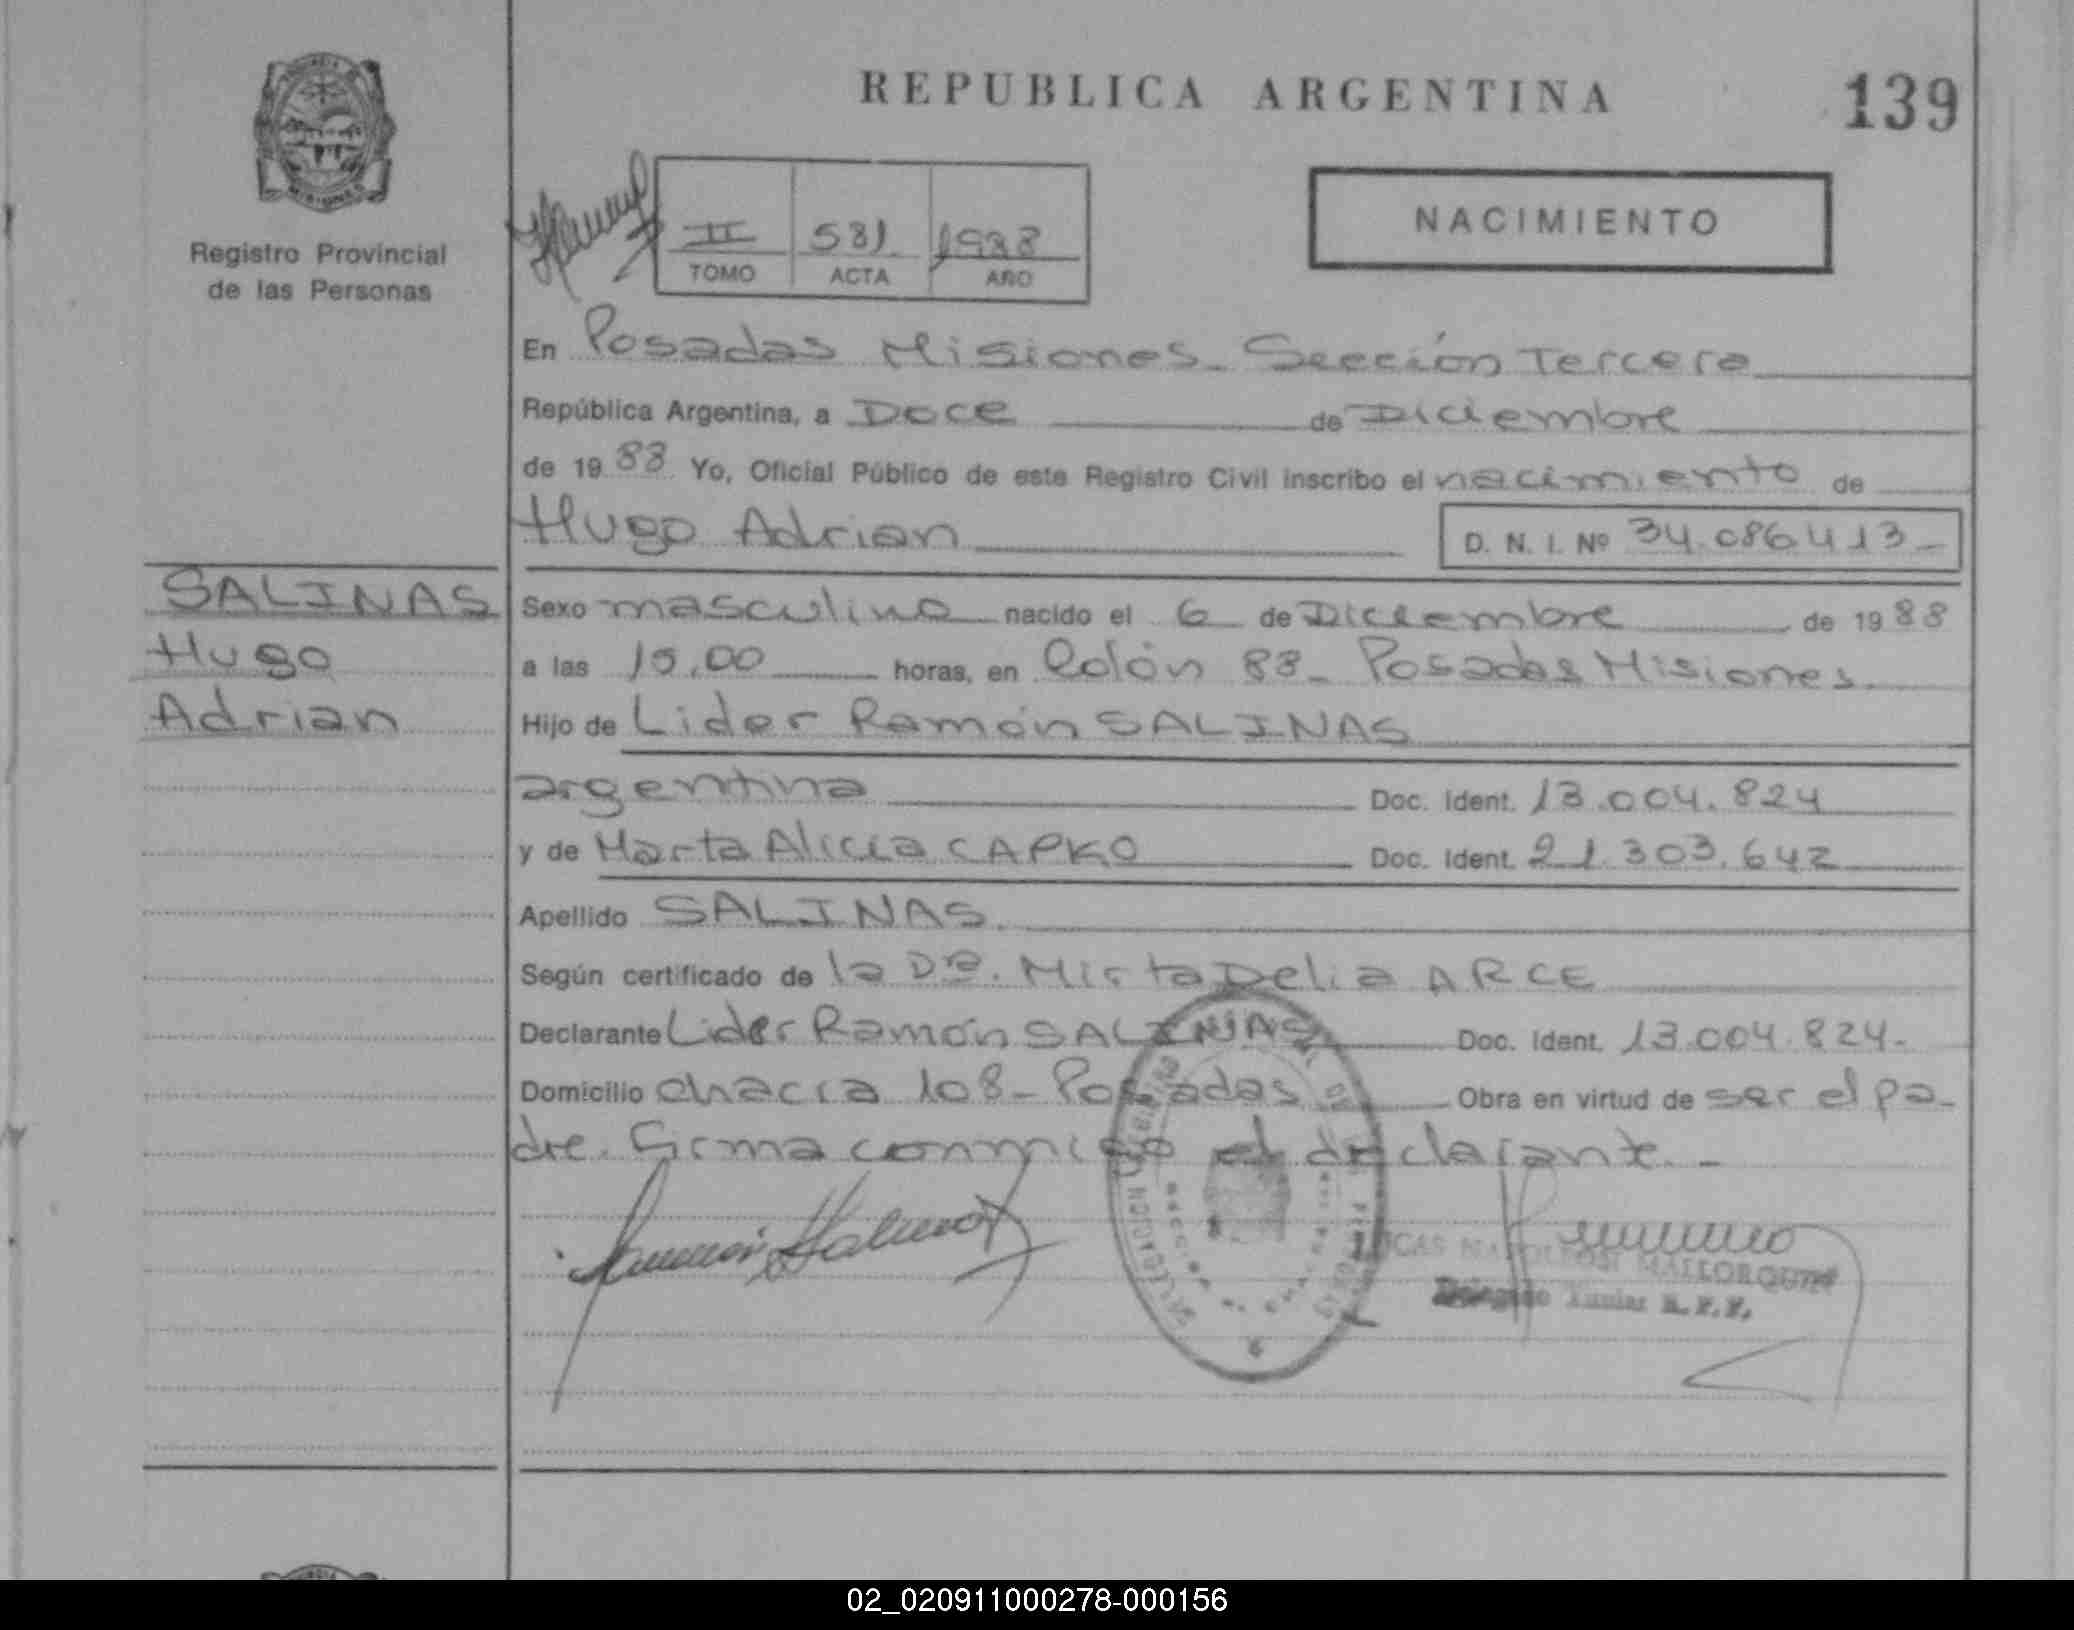 REPUBLICA ARGENTINA
139
PROVINCIA DE
MISIONES
Registro Provincial
de las Personas
II 581 1988
TOMO ACTA AÑO
NACIMIENTO
En Posadas Misiones. Sección Tercera
República Argentina, a Doce de Diciembre
de 1988 Yo, Oficial Público de este Registro Civil inscribo el nacimiento de
Hugo Adrian
D. N. I. Nº 34.086.413-
SALINAS
Hugo
Adrian
Sexo masculino nacido el 6 de Diciembre de 1988
a las 15.00 horas, en Colón 88- Posadas Misiones.
Hijo de Lider Ramón SALINAS
argentina Doc. Ident. 13.004.824
y de Marta Alicia CAPKO Doc. Ident. 21.303.642
Apellido SALINAS.
Según certificado de la Dra. Mirta Delia ARCE
Declarante Lider Ramón SALINAS Doc. Ident. 13.004.824.
Domicilio chacra 108- Posadas Obra en virtud de ser el pa-
dre. Firma conmigo el declarante.-
LUCAS NAPOLEON MALLORQUIN
Delegado Titular R.P.P.
02_020911000278-000156